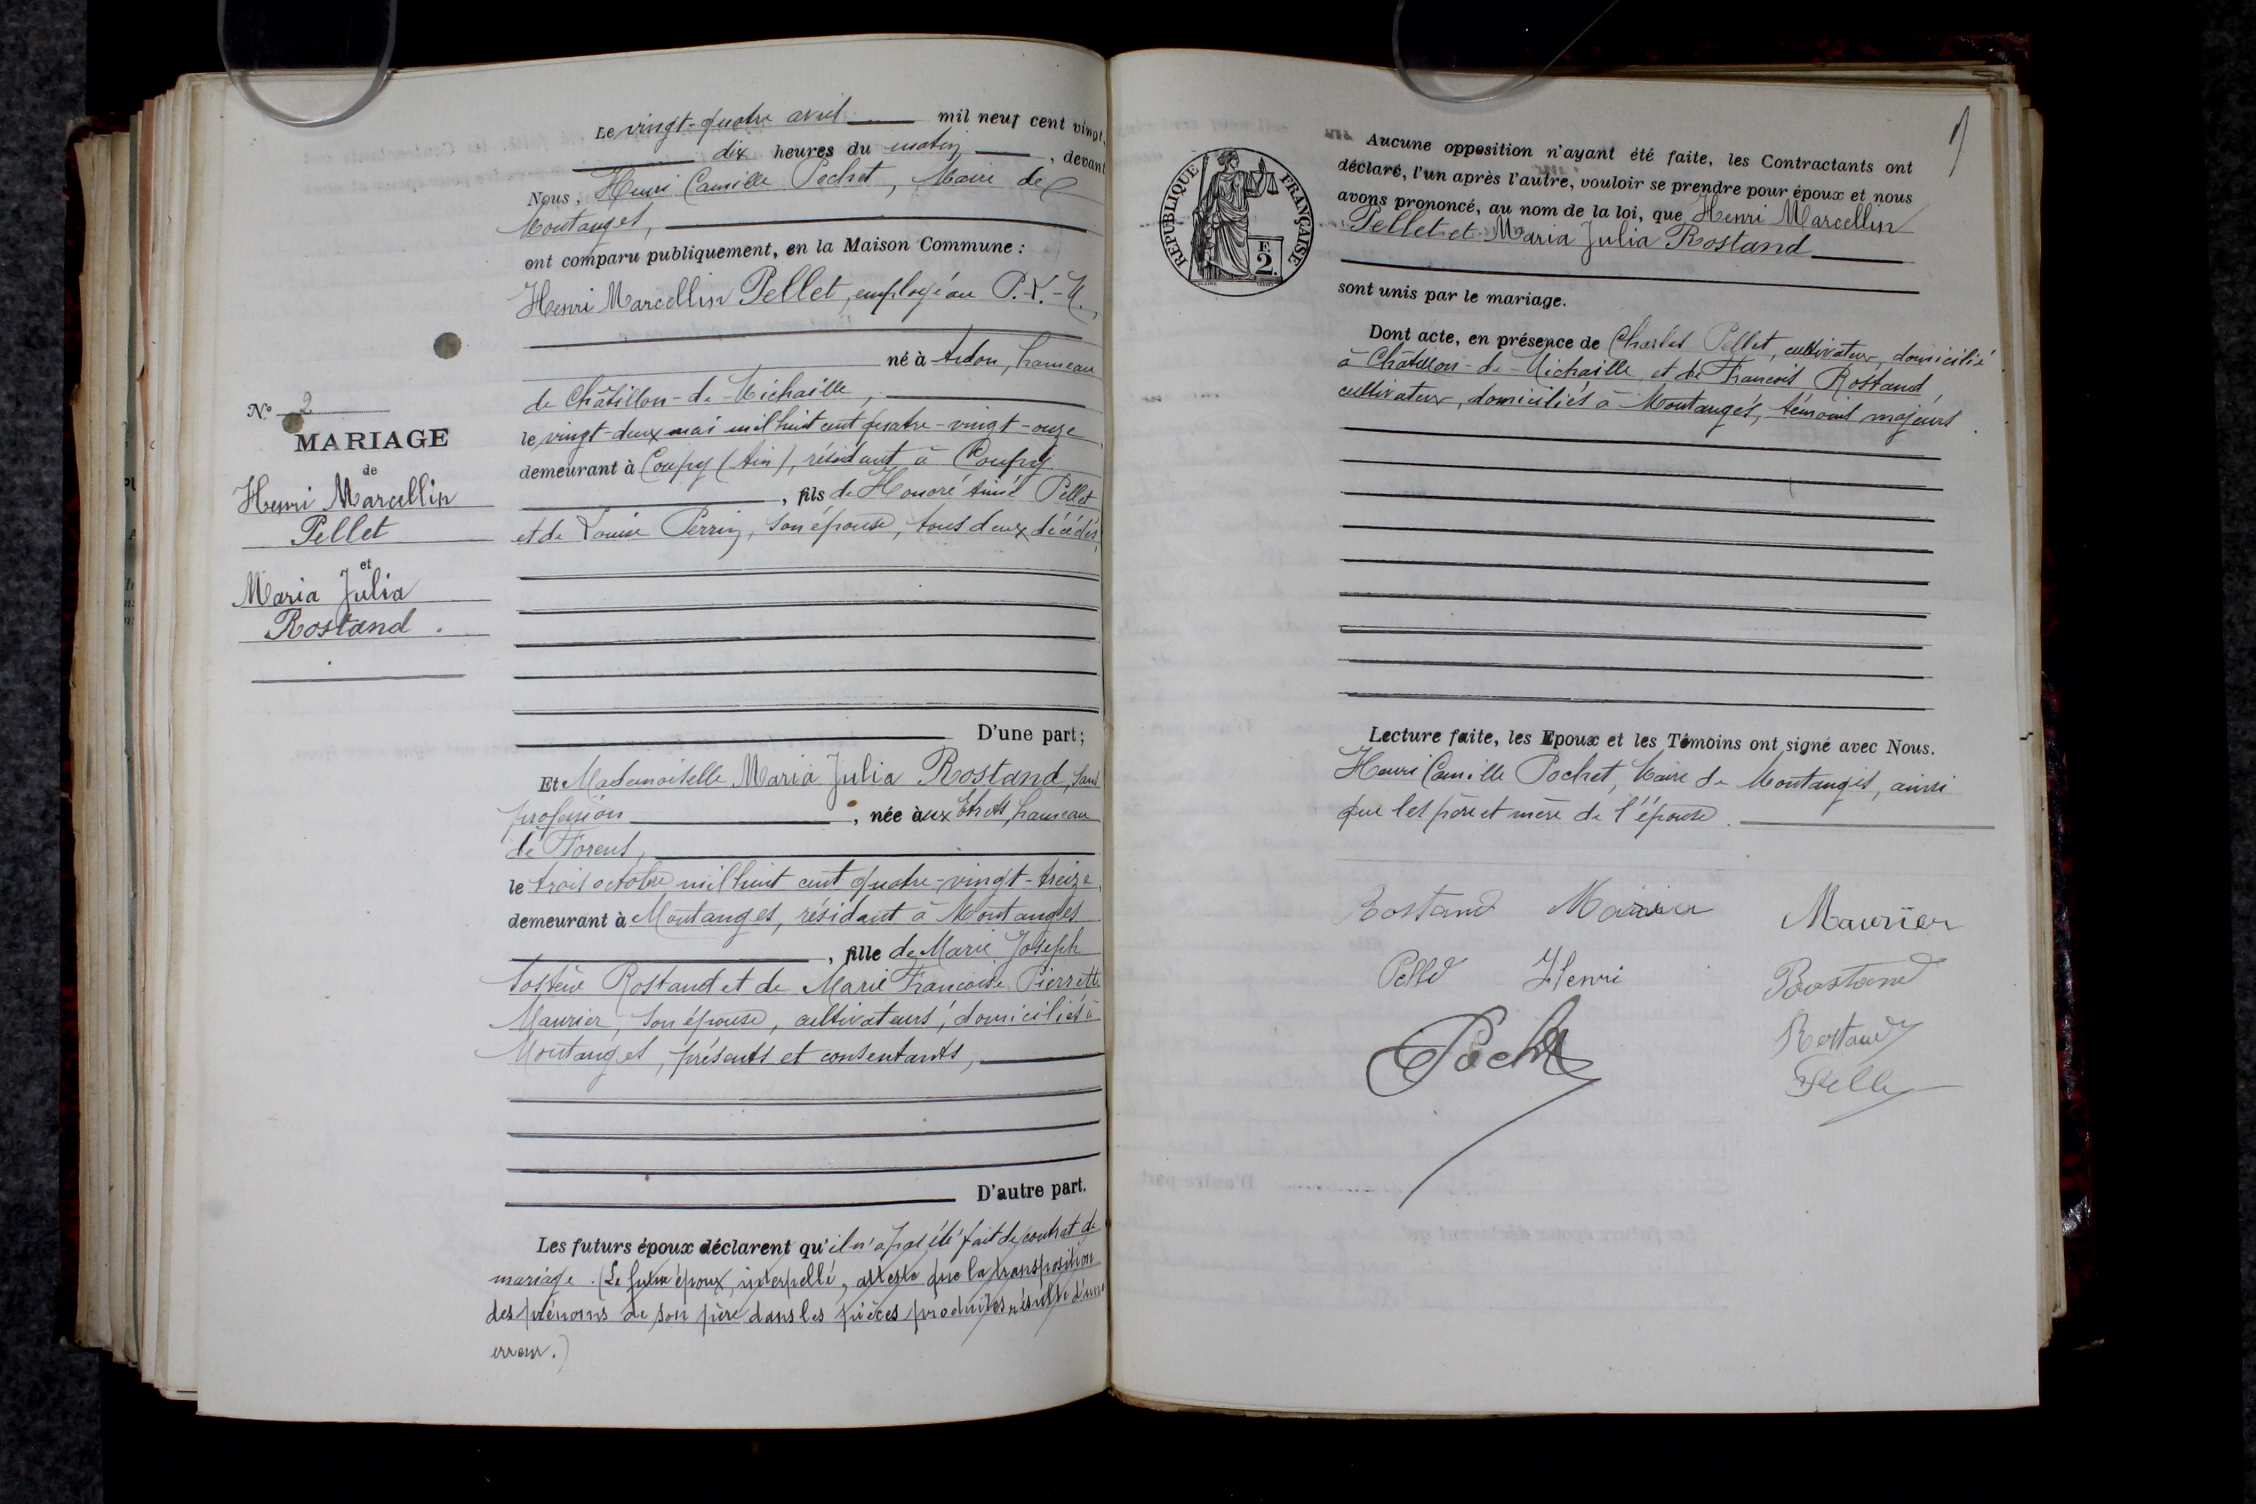 Le vingt-quatre avril mil neuf cent vingt,
dix heures du matin, devant
Nous, Henri Camille Pochet, Maire de
Montanges,
ont comparu publiquement, en la Maison Commune :
Henri Marcellin Pellet, employé au P.-L.-M.,
né à Ardon, hameau
de Châtillon-de-Michaille,
le vingt-deux mai mil huit cent quatre-vingt-onze,
demeurant à Coupy (Ain), résidant à Coupy
, fils de Honoré Aimé Pellet
et de Louise Perrin, son épouse, tous deux décédés,
D'une part;
Et Mademoiselle Maria Julia Rostand, sans
profession, née aux hameau
de Forens,
le trois octobre mil huit cent quatre-vingt-treize,
demeurant à Montanges, résidant à Montanges
, fille de Marie Joseph
Sostène Rostand et de Marie Françoise Pierrette
Maurier, son épouse, cultivateurs, domiciliés à
Montanges, présents et consentants,
D'autre part.
Les futurs époux déclarent qu'il n'a pas été fait de contrat de
mariage. (Le futur époux, interpellé, atteste que la transposition
des prénoms de son père dans les pièces produites résulte d'une
erreur.)
N° 2
MARIAGE
de
Henri Marcellin
Pellet
et
Maria Julia
Rostand.
RÉPUBLIQUE FRANÇAISE
F.
2.
Aucune opposition n'ayant été faite, les Contractants ont
déclaré, l'un après l'autre, vouloir se prendre pour époux et nous
avons prononcé, au nom de la loi, que Henri Marcellin
Pellet et Maria Julia Rostand
sont unis par le mariage.
Dont acte, en présence de Charles Pellet, cultivateur, domicilié
à Châtillon-de-Michaille et de François Rostand,
cultivateur, domiciliés à Montanges, témoins majeurs.
Lecture faite, les Epoux et les Témoins ont signé avec Nous.
Henri Camille Pochet, Maire de Montanges, ainsi
que les père et mère de l'épouse.
Rostand Maria Maurier
Pellet Henri Rostand
Pochet Rostand
Pellet